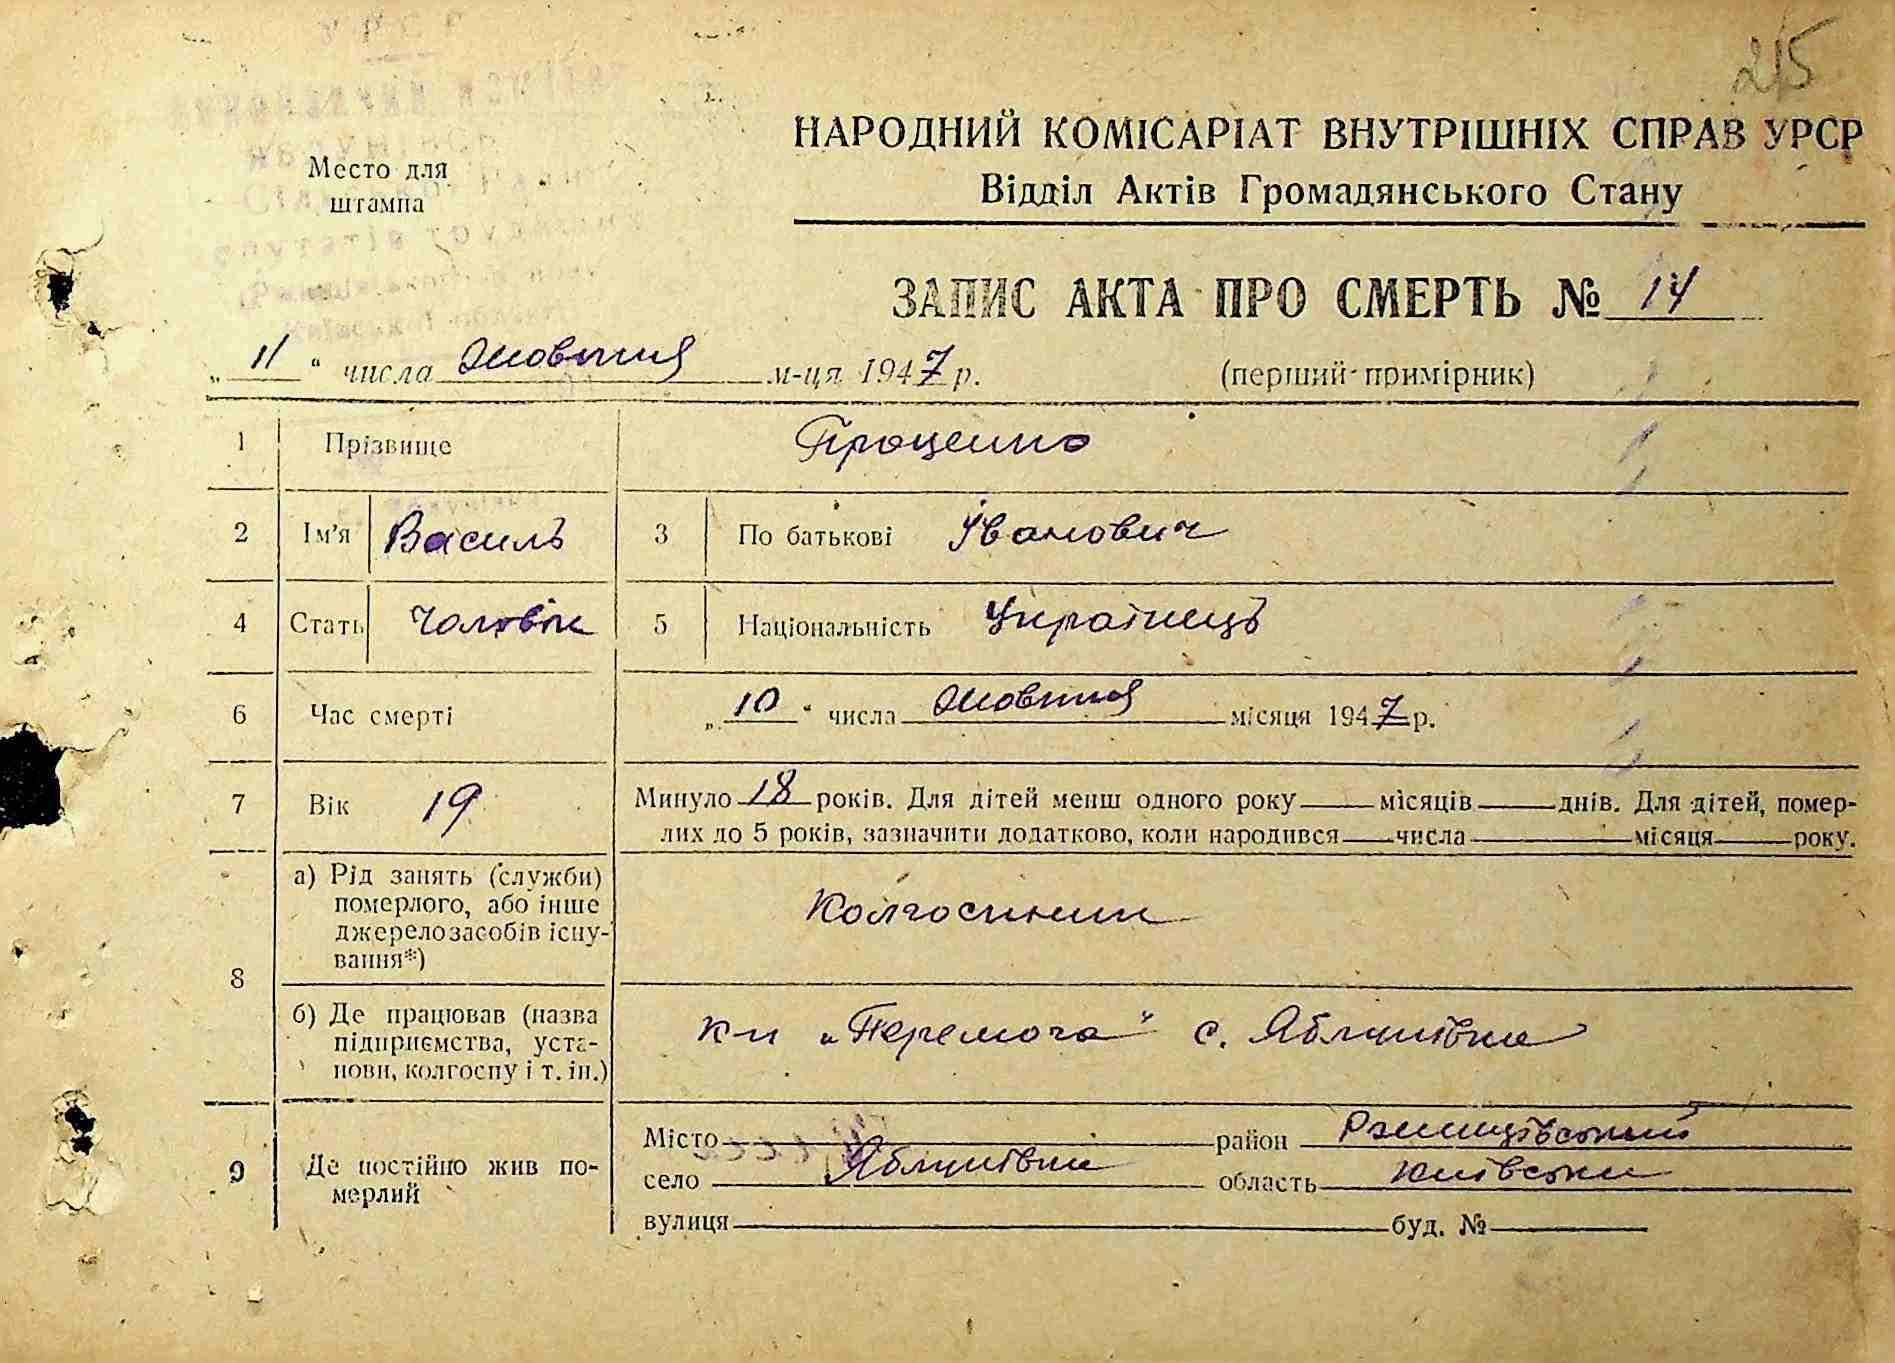 215
НАРОДНИЙ КОМІСАРІАТ ВНУТРІШНІХ СПРАВ УРСР
Відділ Актів Громадянського Стану
Место для
штампа
ЗАПИС АКТА ПРО СМЕРТЬ № 14
„11“ числа Жовтня м-ця 1947 р. (перший примірник)
1 Прізвище Проценко
2 Ім'я Василь 3 По батькові Іванович
4 Стать Чоловік 5 Національність Українець
6 Час смерті „10“ числа Жовтня місяця 1947 р.
7 Вік 19 Минуло 18 років. Для дітей менш одного року місяців днів. Для дітей, помер-
лих до 5 років, зазначити додатково, коли народився числа місяця року.
8 а) Рід занять (служби)
померлого, або інше
джерело засобів існу-
вання*)
Колгоспник
б) Де працював (назва
підприємства, уста-
нови, колгоспу і т. ін.)
к-п „Перемога“ с. Яблунівка
9 Де постійно жив по-
мерлий
Місто район Ржищівський
село Яблунівка область Київська
вулиця буд. №